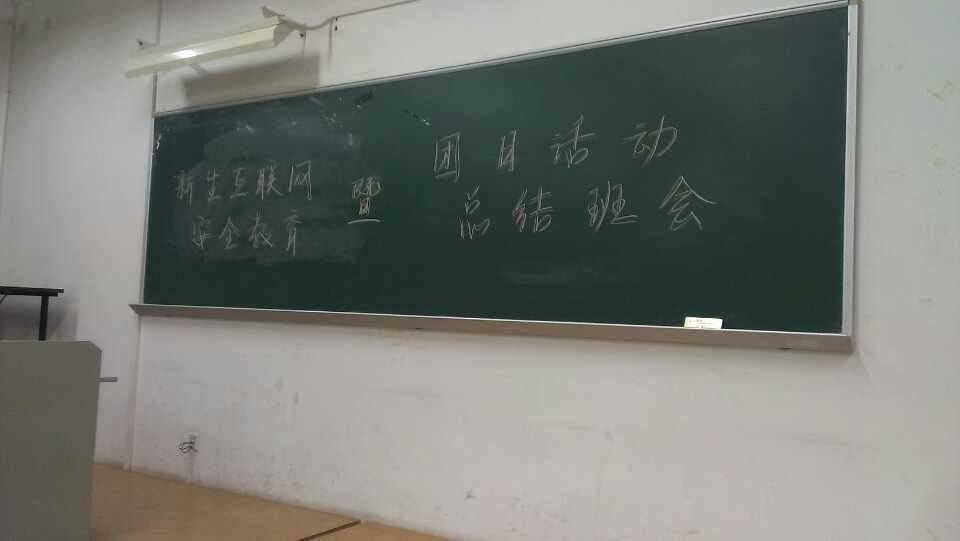 新生互联网
安全教育
暨
团日活动
总结班会